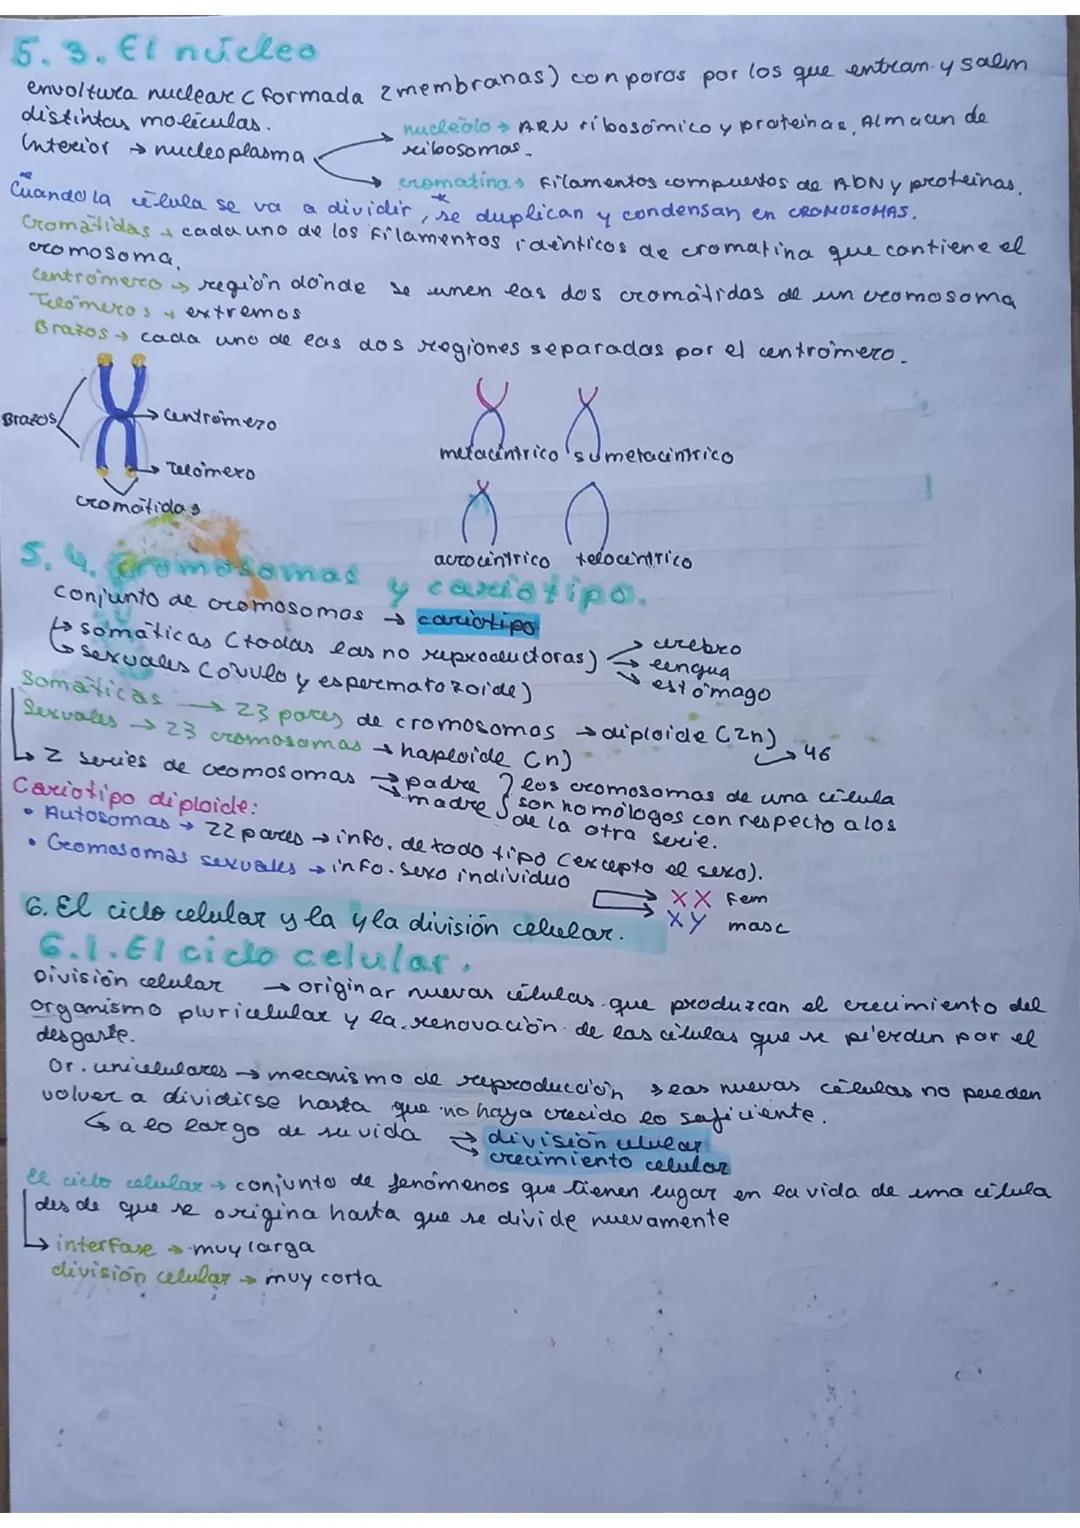 5.3. El núcleo
envoltura nuclear (formada 2 membranas) con poros por los que entran y salen
distintas moléculas.
Interior → nucleoplasma
nucleolo → ARN ribosómico y proteínas. Almacen de
ribosomas.
cromatina → Filamentos compuestos de ADN y proteínas.
Cuando la célula se va a dividir, se duplican y condensan en CROMOSOMAS.
Cromátidas → cada uno de los filamentos idénticos de cromatina que contiene el
cromosoma.
Centrómero → región dónde se unen las dos cromátidas de un cromosoma
Telómeros → extremos
Brazos → cada uno de las dos regiones separadas por el centrómero.
Brazos
→ centrómero
→ Telómero
cromátidas
metacéntrico sumetacéntrico
acrocéntrico telocéntrico
5.4. Cromosomas y cariotipo.
Conjunto de cromosomas → cariotipo
↳ somáticas (todas las no reproductoras)
→ cerebro
→ lengua
→ estómago
↳ sexuales (óvulo y espermatozoide)
Somáticas → 23 pares de cromosomas → diploide (2n) → 46
Sexuales → 23 cromosomas → haploide (n)
↳ 2 series de cromosomas → padre
→ madre
los cromosomas de una célula
son homólogos con respecto a los
de la otra serie.
Cariotipo diploide:
• Autosomas → 22 pares → info. de todo tipo (excepto el sexo).
• Cromosomas sexuales → info. sexo individuo
→ XX Fem
→ XY masc
6. El ciclo celular y la y la división celular.
6.1. El ciclo celular.
División celular → originar nuevas células que produzcan el crecimiento del
organismo pluricelular y la renovación de las células que se pierden por el
desgaste.
Or. unicelulares → mecanismo de reproducción → las nuevas células no pueden
volver a dividirse hasta que no haya crecido lo suficiente.
↳ a lo largo de su vida → división celular
→ crecimiento celular
El ciclo celular → conjunto de fenómenos que tienen lugar en la vida de una célula
desde que se origina hasta que se divide nuevamente
↳ interfase → muy larga
división celular → muy corta